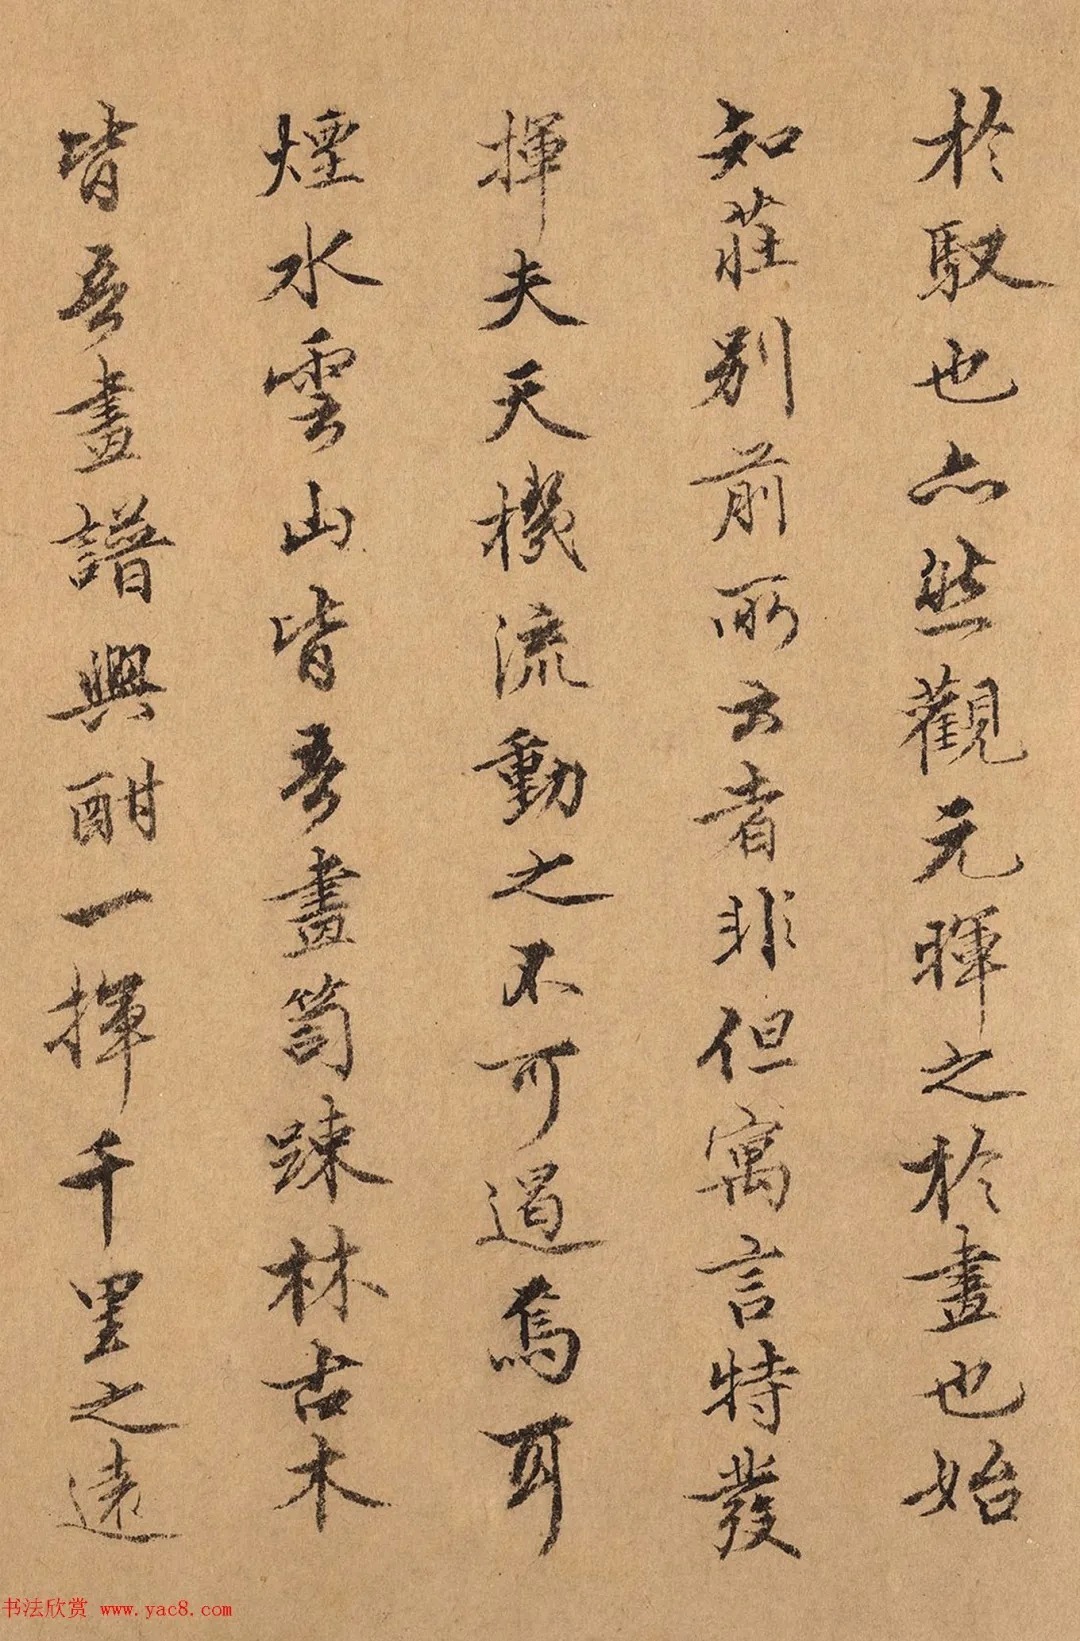 於馭也亦然觀元暉之於畫也始
知莊列前所云者非但寓言特發
揮夫天機流動之不可遏焉耳
煙水雲山皆吾畫笥踈林古木
皆吾畫譜興酣一揮千里之遠
书法欣赏 www.yac8.com